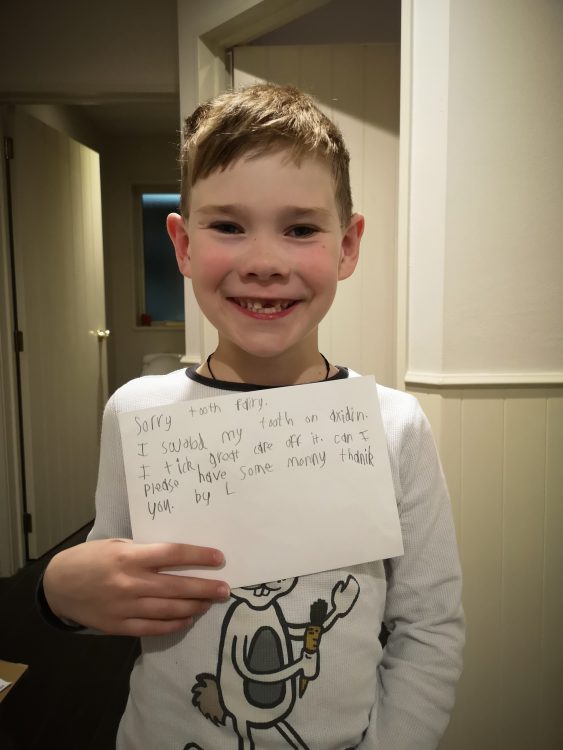 Sorry tooth fairy.
I swalad my tooth on axidin.
I tick great care off it. can I
please have some monny thank
you. by L